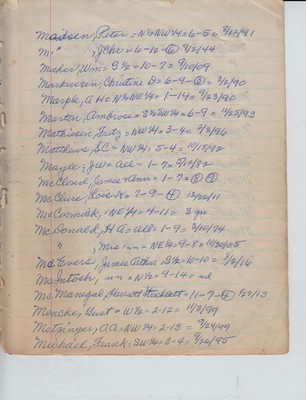 Madsen, Peter = N½NW¼ = 6-5 = 3/12/91
M. " , J Chr = 6-12-⑥ 9/12/44
Maher, Wm = S½ = 10-7 = 9/10/09
Markussen, Christine B = 6-9-② = 2/90
Marple, A H = N½NE¼ = 1-14 = 9/23/90
Marton, Ambrose = S½SW¼ = 6-9 = 4/25/93
Mathiesen, Fritz = NW¼ = 3-4 = 2/3/96
Matthews, E C = NW¼ = 5-4 = 10/18/92
Mayle, J W = all = 1-7 = 9/12/82
McCloud, James & Ann = 1-7 =
McClure, Lois K = 7-9-④ 12/26/11
McCormick, - NE¼ = 4-11 =
McDonald, H A = all = 1-9 = 3/10/74
" , Mrs = nn = NE¼ = 9-8 = 10/30/05
McEvers, James Arthur = S½ = 10-10 = 2/8/16
McIntosh, nn = N½ = 9-14 = nd
McManigal, Harriett Stricklett = 11-7-④ 1/29/13
Mencke, Gust = W½ = 2-12 = 11/8/99
Metzinger, AA = NW¼ = 2-13 = 9/24/99
Michael, Frank = SW¼ = 3-4 = 9/26/95